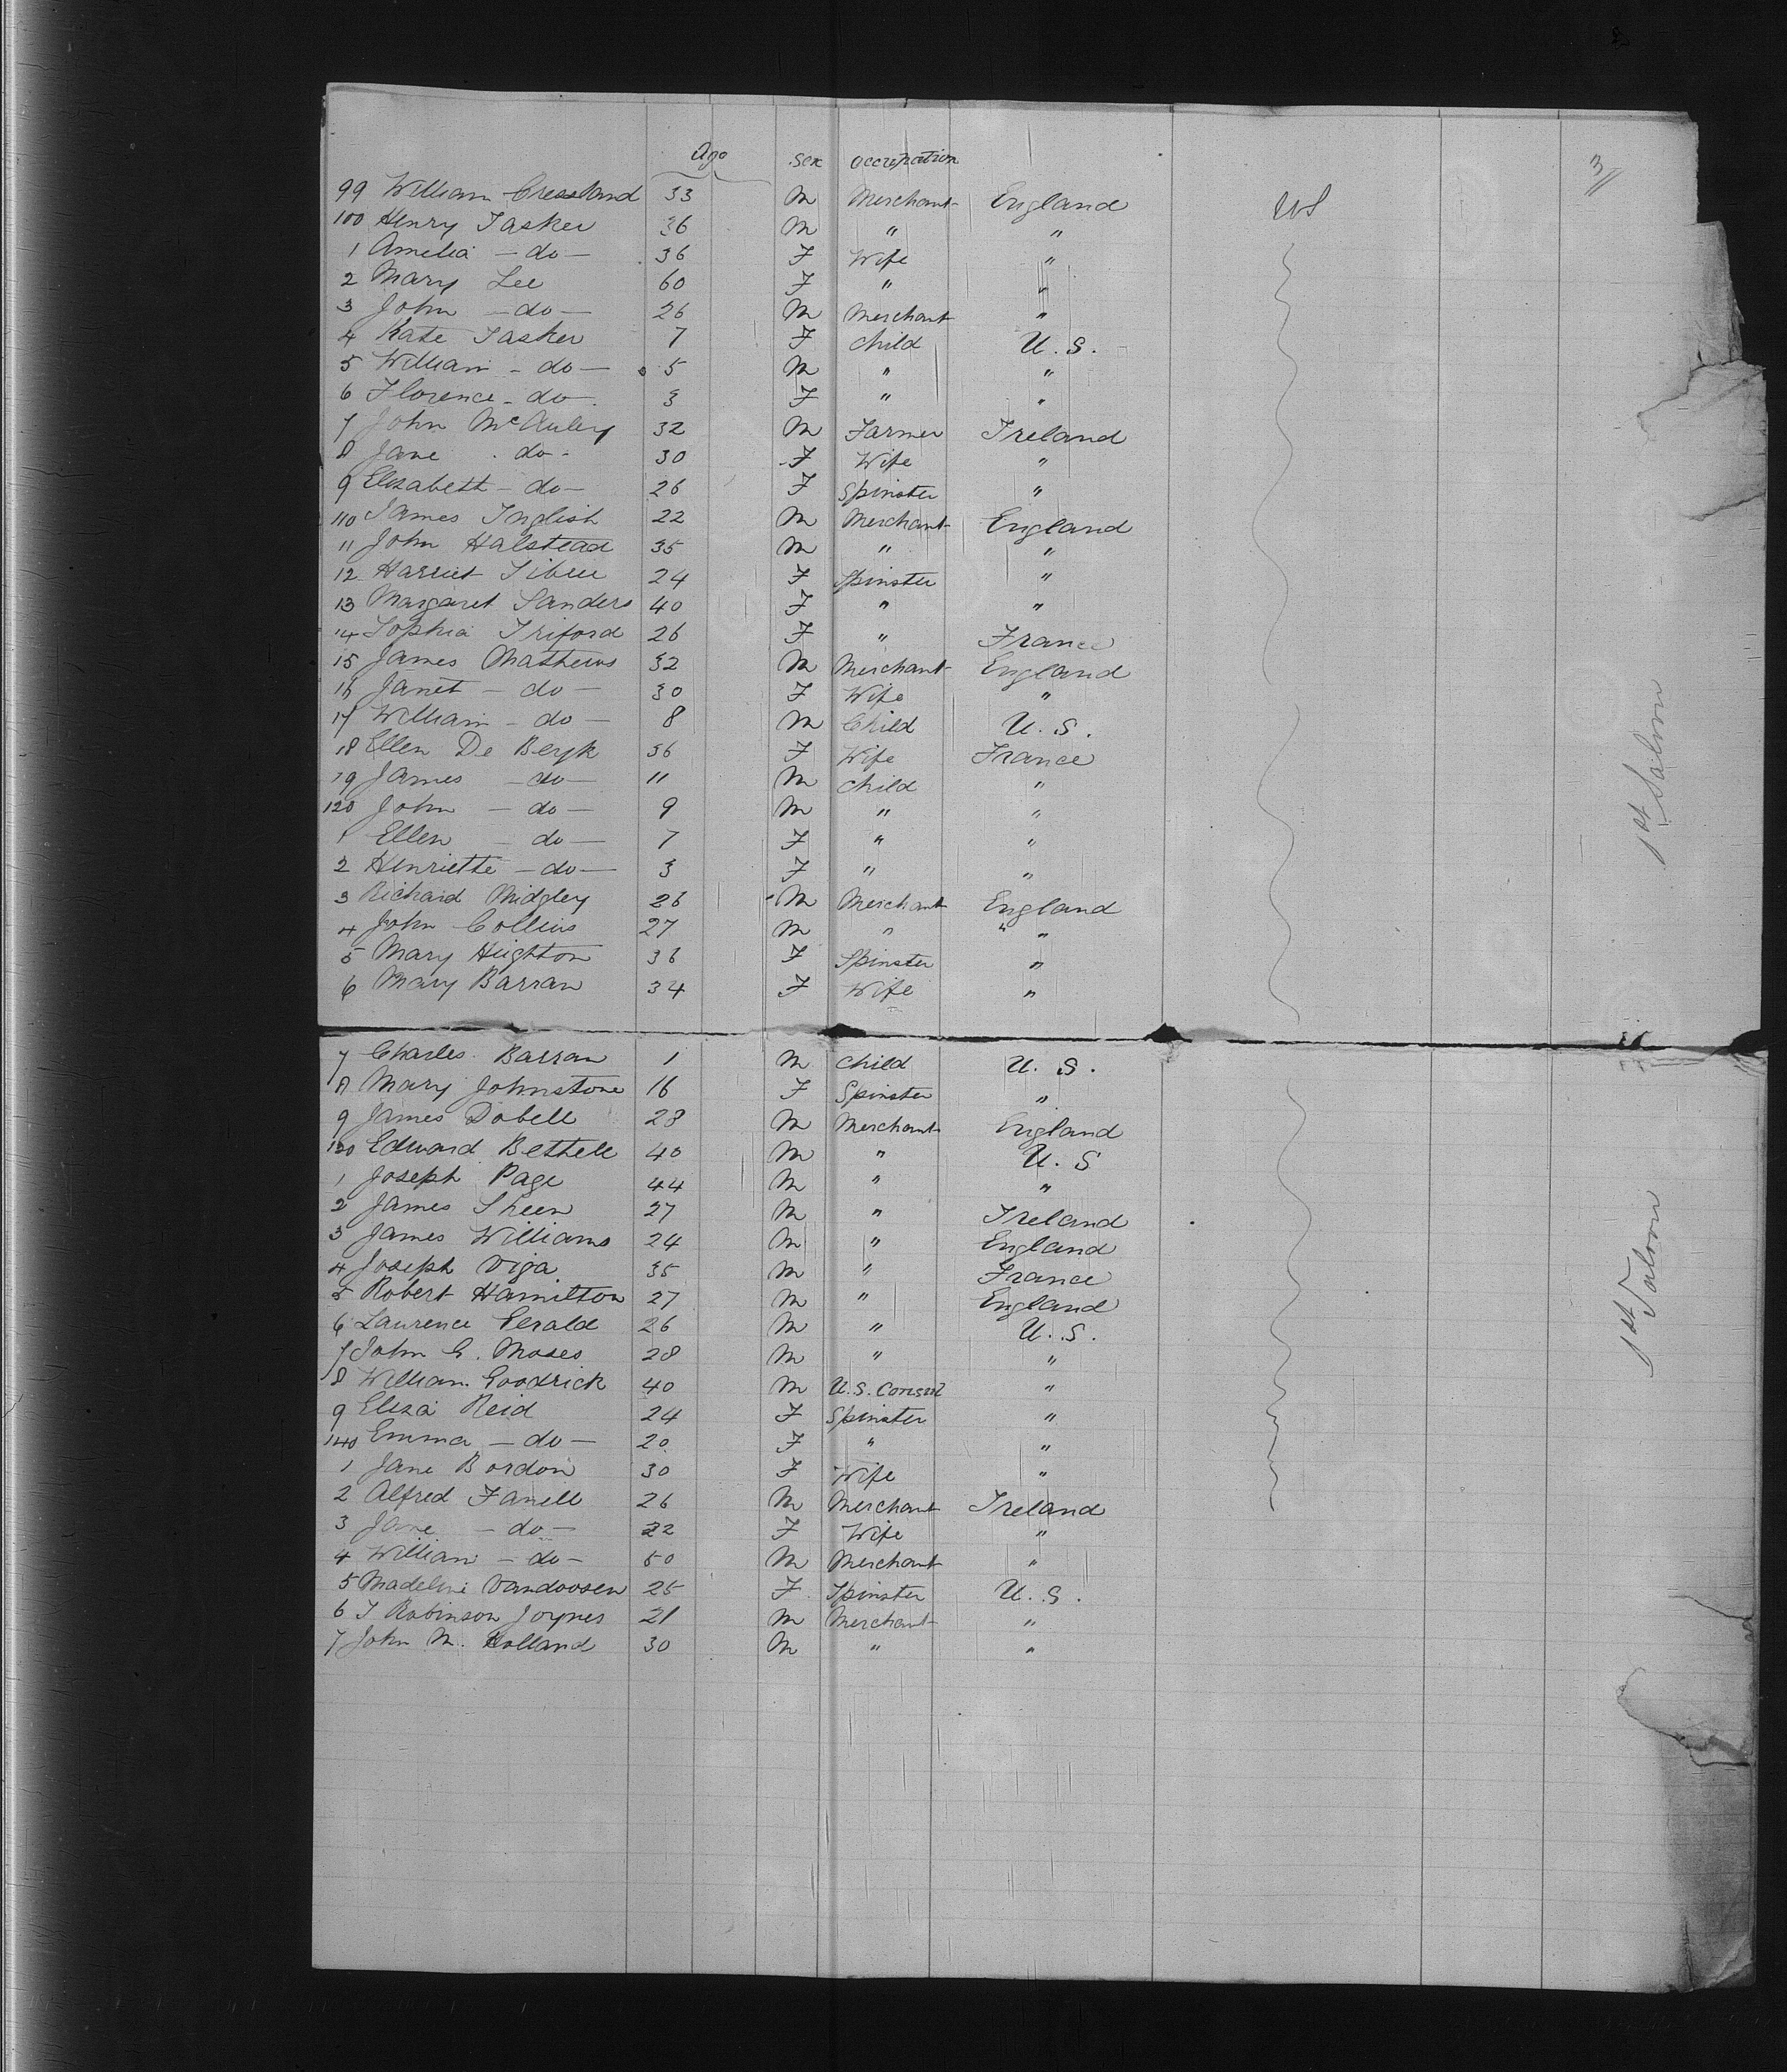 3
Age sex occupation
99 William Cressland 33 M Merchant England US
100 Henry Tasker 36 M " "
1 Amelia - do - 36 F Wife "
2 Mary Lee 60 F " "
3 John - do - 26 M Merchant "
4 Kate Tasker 7 F Child U.S.
5 William - do - 5 M " "
6 Florence - do - 3 F " "
7 John McAuley 32 M Farmer Ireland
8 Jane - do - 30 F Wife "
9 Elizabeth - do - 26 F Spinster "
110 James Inglish 22 M Merchant England
11 John Halstead 35 M " "
12 Harriet 24 F Spinster "
13 Margaret Sanders 40 F " "
14 Sophia Triford 26 F " France
15 James Mathews 32 M Merchant England
16 Janet - do - 30 F Wife "
17 William - do - 8 M Child U.S.
18 Ellen De Beryk 36 F Wife France
19 James - do - 11 M Child "
120 John - do - 9 M " "
1 Ellen - do - 7 F " "
2 Henriette - do - 3 F " "
3 Richard Midgley 26 M Merchant England
4 John Collins 27 M " " "
5 Mary Heighton 36 F Spinster "
6 Mary Barran 34 F Wife "
1st Saloon
7 Charles Barran 1 M Child U.S.
8 Mary Johnstone 16 F Spinster "
9 James Dobell 28 M Merchant England
130 Edward Bethell 40 M " U.S
1 Joseph Page 44 M " "
2 James Sheen 27 M " Ireland
3 James Williams 24 M " England
4 Joseph Viga 35 M " France
5 Robert Hamilton 27 M " England
6 Laurence Gerald 26 M " U.S.
7 John G. Moses 28 M " "
8 William Goodrick 40 M U.S. Consul "
9 Eliza Reid 24 F Spinster "
140 Emma - do - 20 F " "
1 Jane Bordon 30 F Wife "
2 Alfred Fanell 26 M Merchant Ireland
3 Jane - do - 22 F Wife "
4 William - do - 50 M Merchant "
5 Madeline Vandoosen 25 F Spinster U.S.
6 J Robinson Joynes 21 M Merchant "
7 John M. Holland 30 M " "
1st Saloon